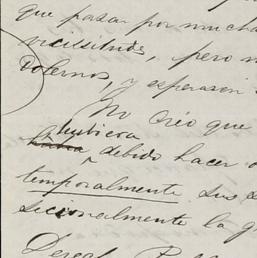 que pasar por mucha
vicisitudes, pero n
dolernos, y esperar
No creo que
hubiera
había debido hacer
temporalmente sus
sicionalmente la g